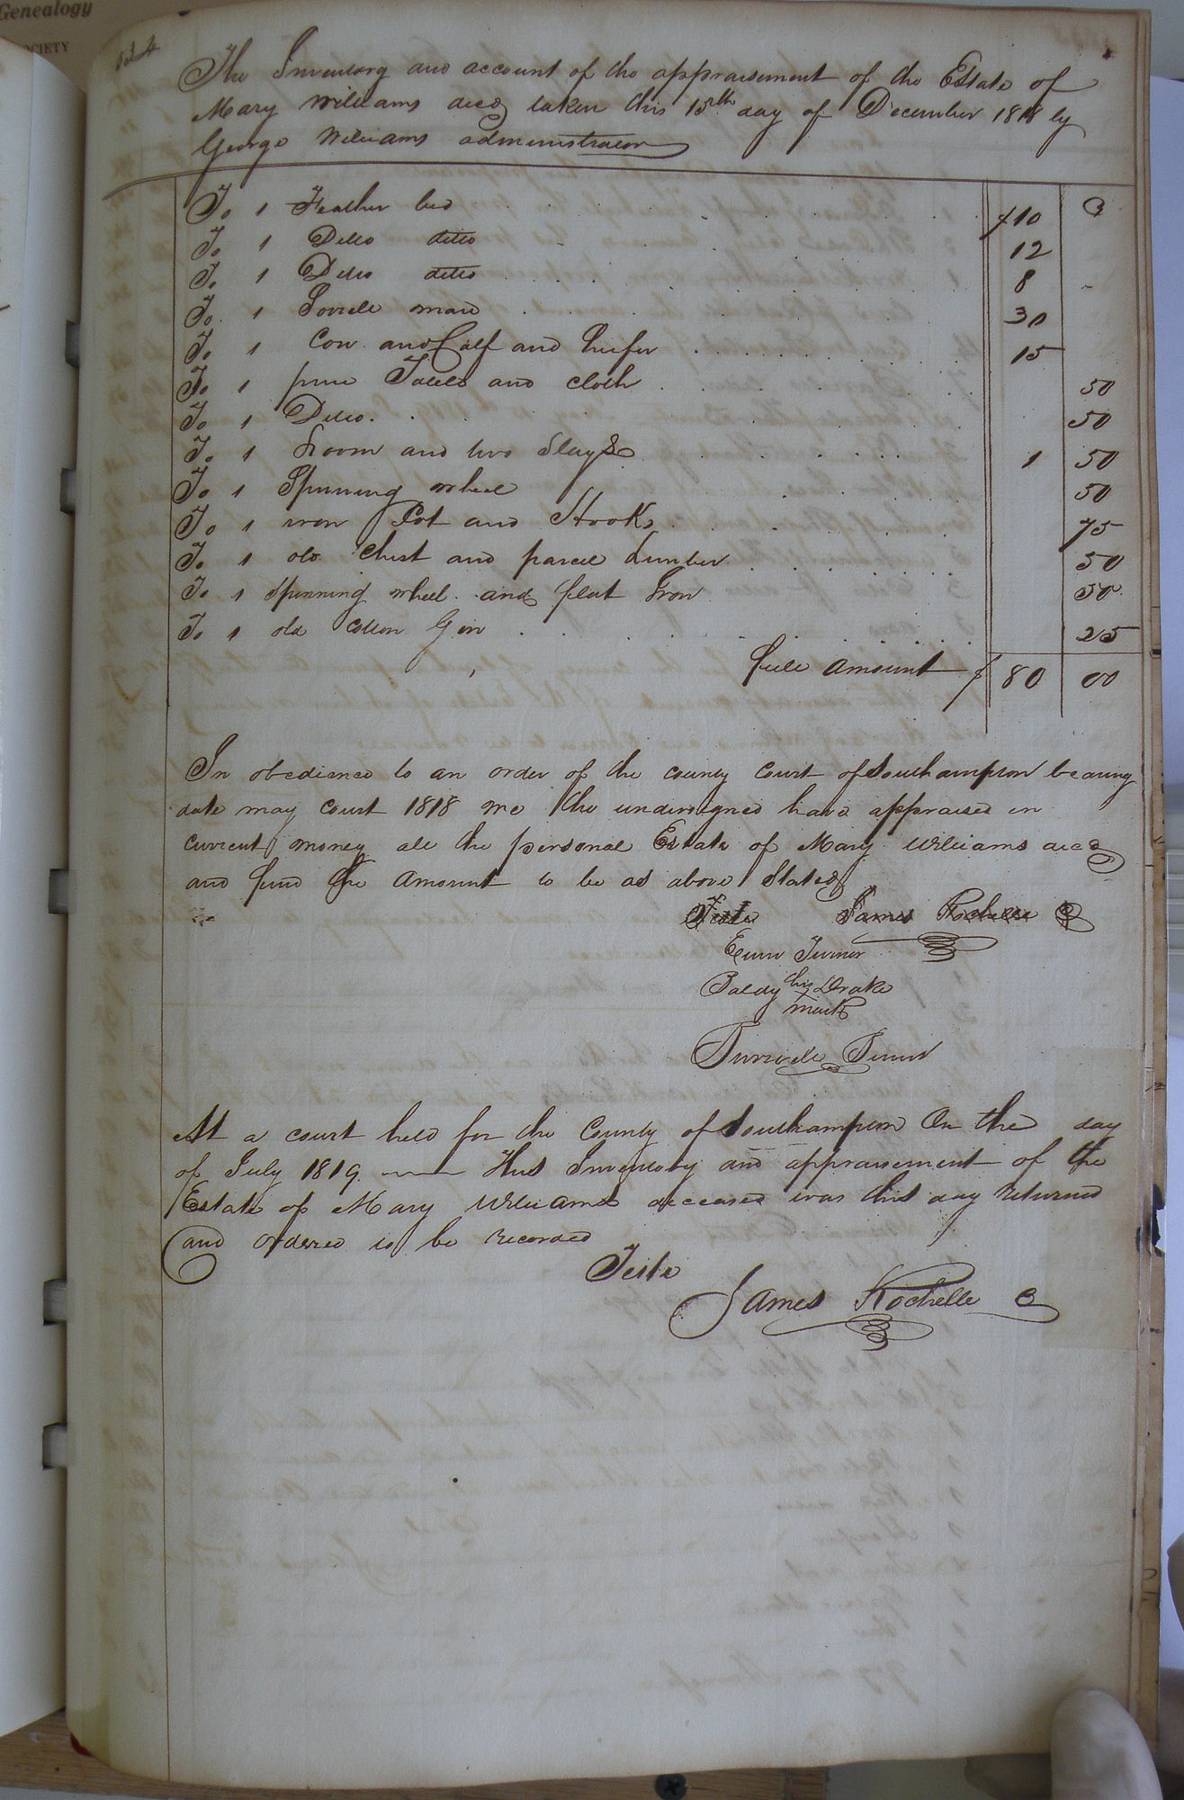 Genealogy
OCIETY
The Inventory and account of the appraisement of the Estate of
Mary Williams decd taken this 15th day of December 1818 by
George Williams administrator
To 1 Feather bed $10 C
To 1 Ditto ditto 12
To 1 Ditto ditto 8 -
To 1 Sorrele mare 30
To 1 Cow and Calf and heifer 15
To 1 pine Table and cloth 50
To 1 Ditto 50
To 1 Loom and two Slays 1 50
To 1 Spinning wheel 50
To 1 iron Pot and Hooks 75
To 1 old Chest and parcel Lumber 50
To 1 Spinning wheel and flat Iron 50
To 1 old Cotton Gin 25
full amount $ 80 00
In obedience to an order of the county Court of Southampton bearing
date may court 1818 we the undersigned have appraised in
current money all the personal Estate of Mary Williams decd
and find the amount to be as above Stated
Teste James Rochelle C
Turner
Baldy his Drake
mark
Turner
At a court held for the County of Southampton On the day
of July 1819 This Inventory and appraisement of the
Estate of Mary Williams deceased was this day returned
and ordered to be recorded
Teste
James Rochelle C